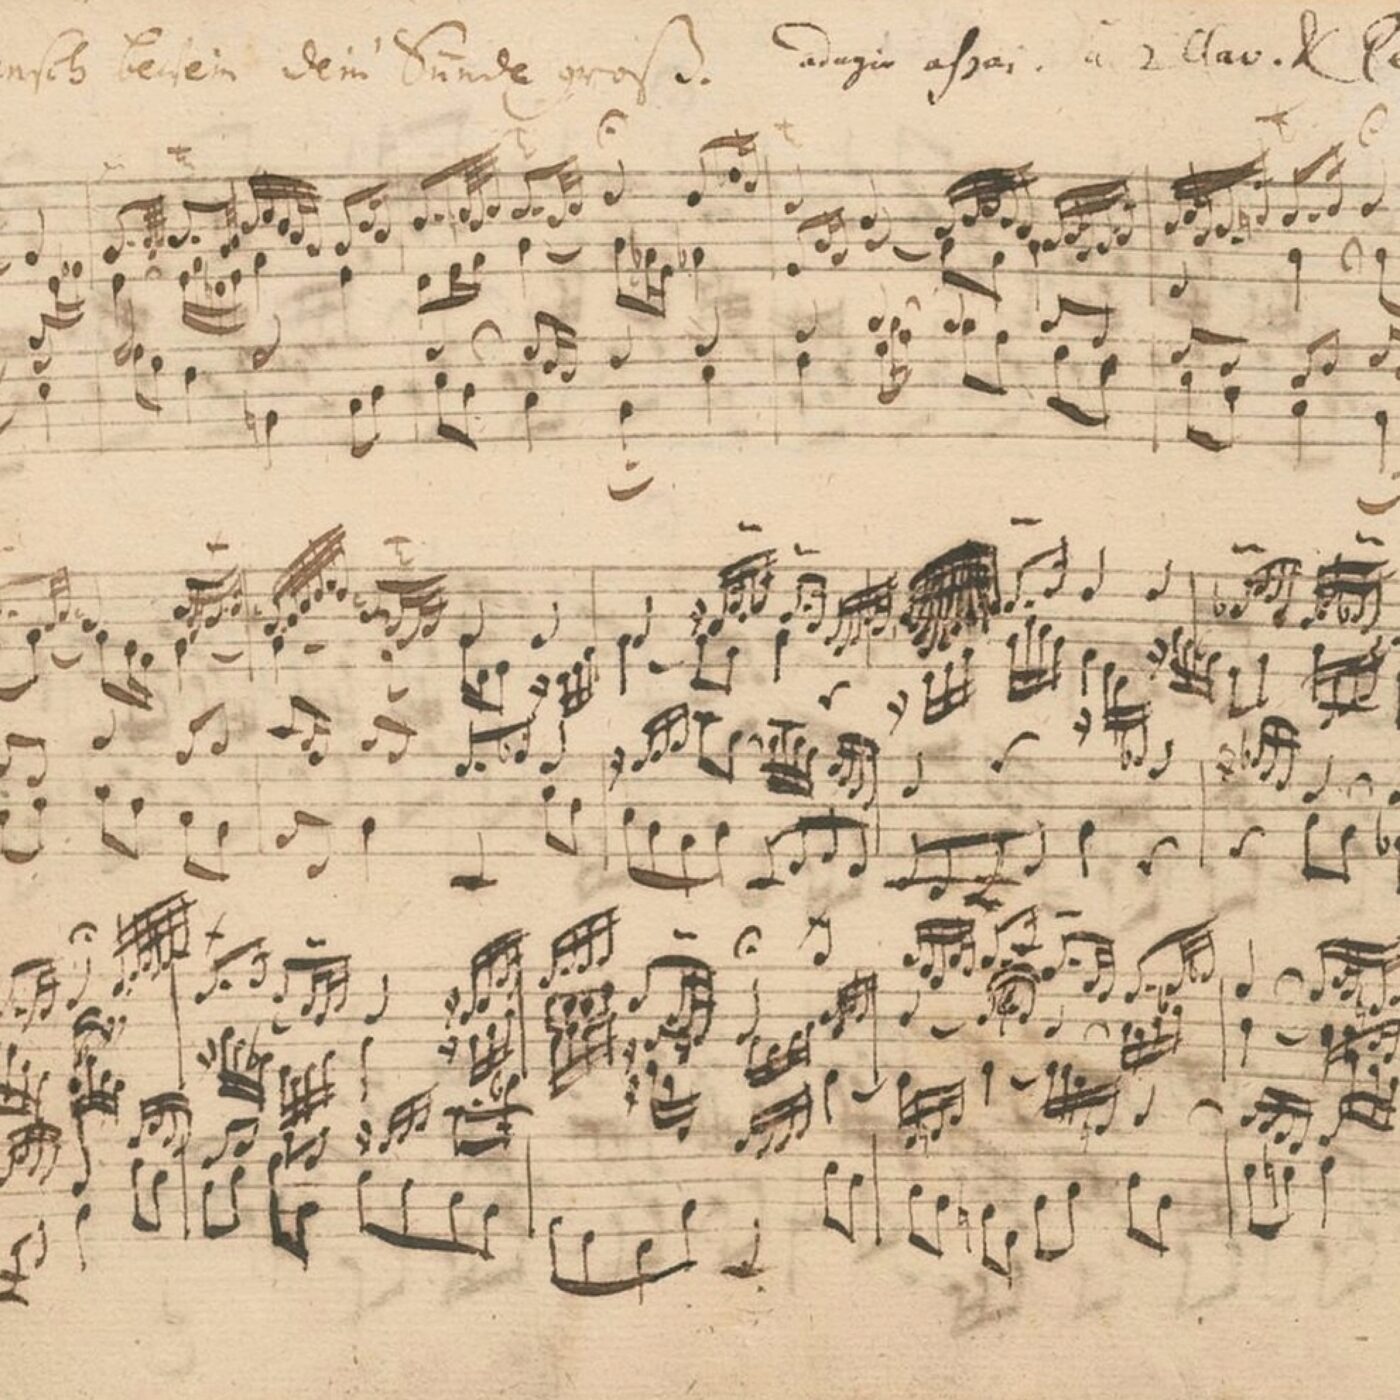 ensch bewein dein' Sünde groß. adagio assai. à 2 Clav. & Pe